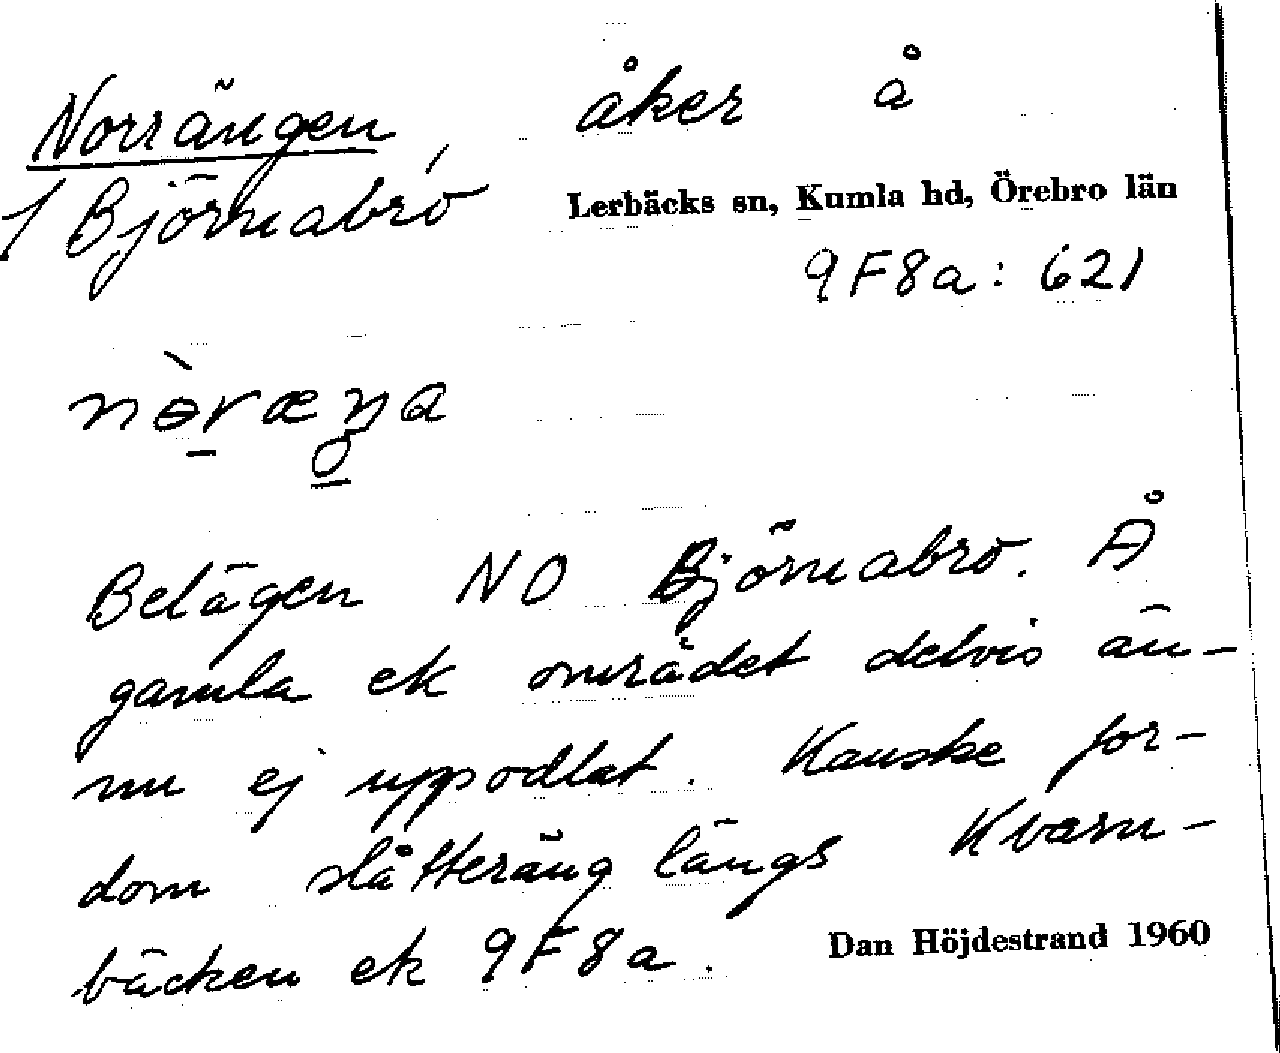 Norrängen, åker å
1 Björnabro Lerbäcks sn, Kumla hd, Örebro län
9F8a: 621
Belägen NO Björnabro. Å
gamla ek området delvis än-
nu ej uppodlat. Kanske for-
dom slåtteräng längs Kvarn-
bäcken ek 9F8a.
Dan Höjdestrand 1960